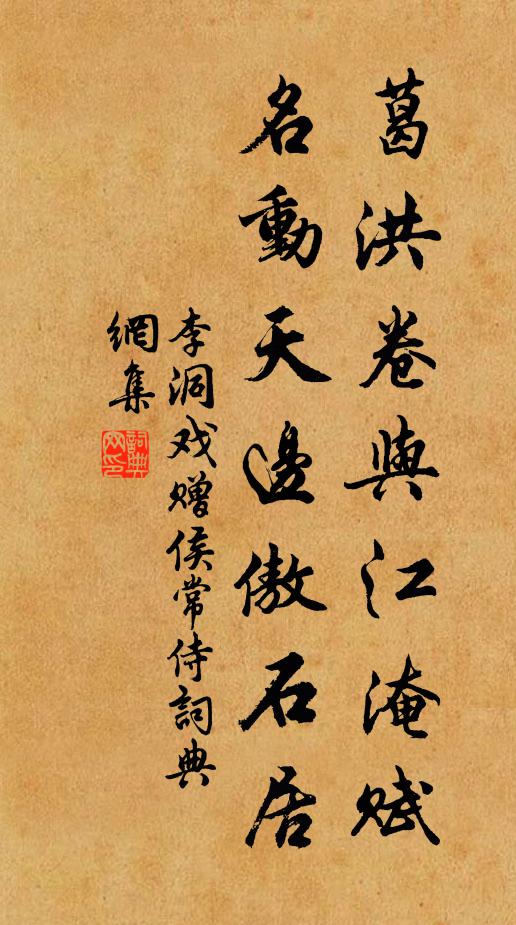 葛洪卷與江淹賦
名動天邊傲石居
李洞戏赠侯常侍詞典
網集
詞典
网印